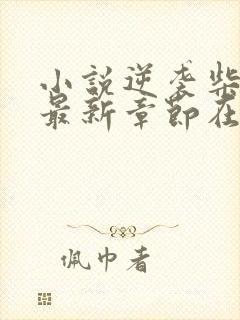 小說逆袭柴
最新章節在
佩巾者